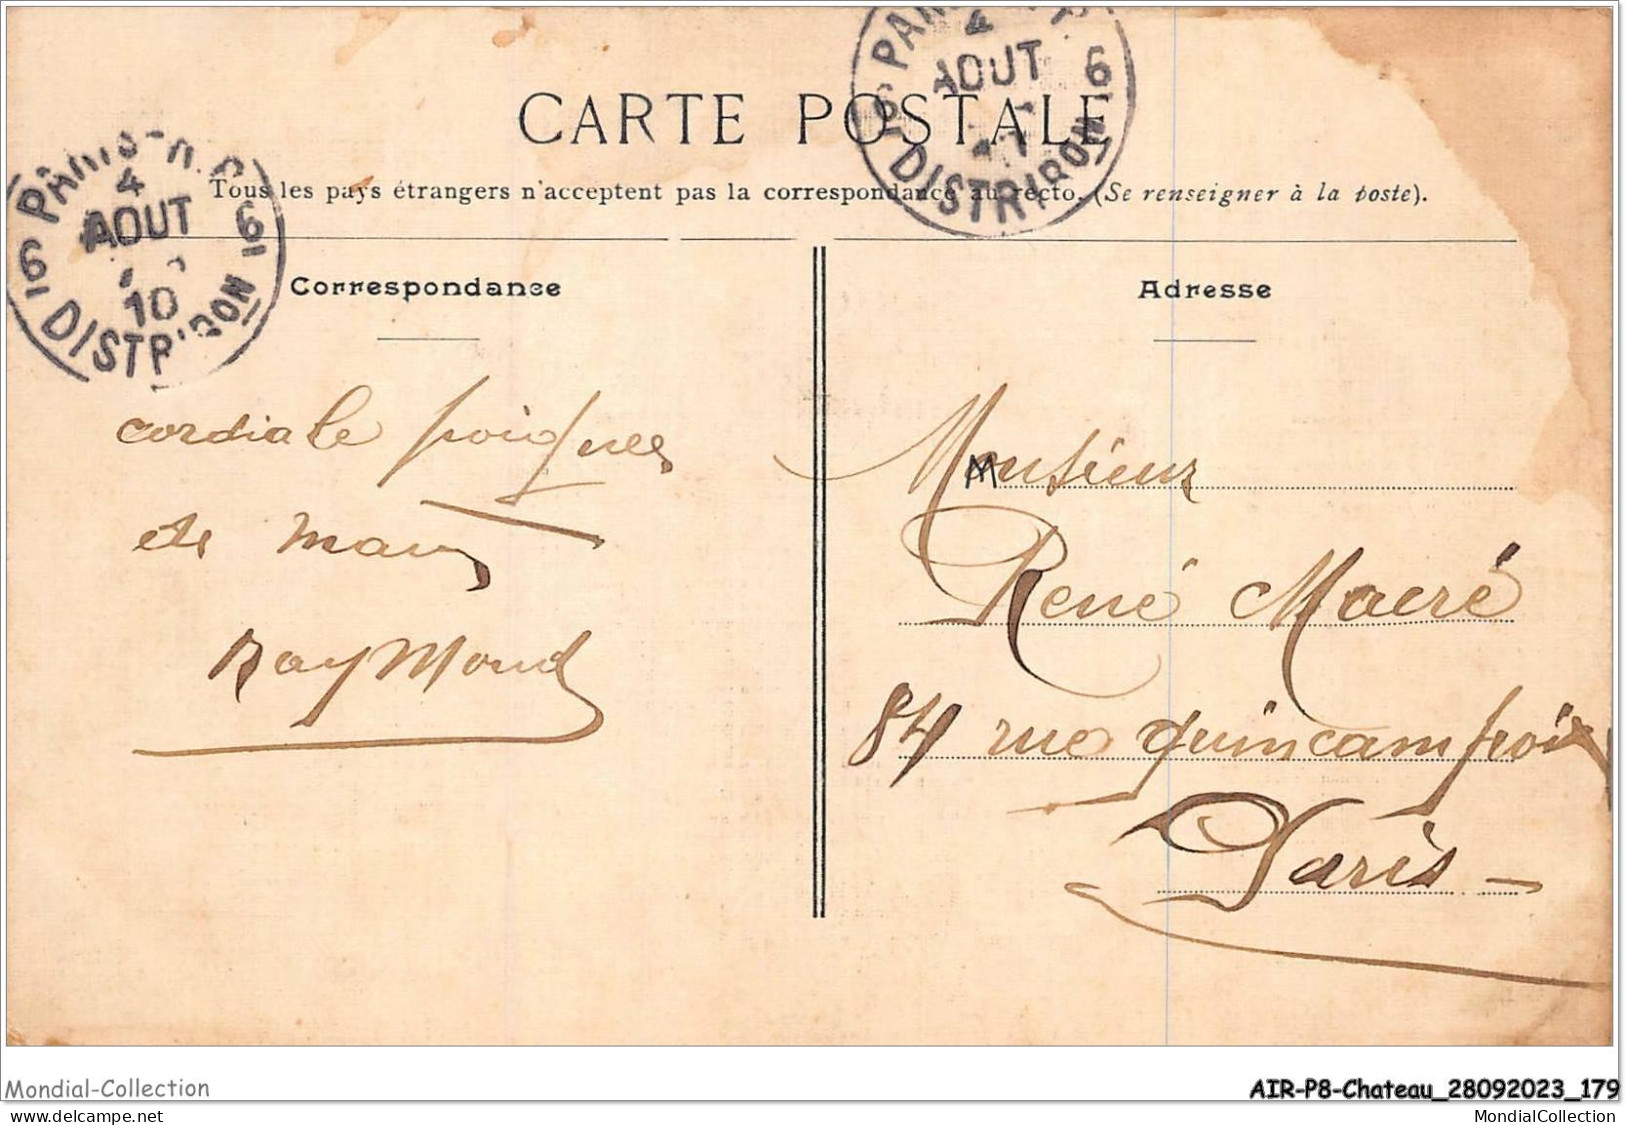 CARTE POSTALE
Tous les pays étrangers n'acceptent pas la correspondance au recto. (Se renseigner à la poste).
PARIS
4
AOUT
10
6 DISTRIBON 6
PARIS
4
AOUT
6 DISTRIBON 6
Correspondance
cordiale poignée
de main
Raymond
Adresse
Monsieur
René Macré
84 rue quincampoix
Paris -
Mondial-Collection
AIR-P8-Chateau_28092023_179
delcampe.net
MondialCollection